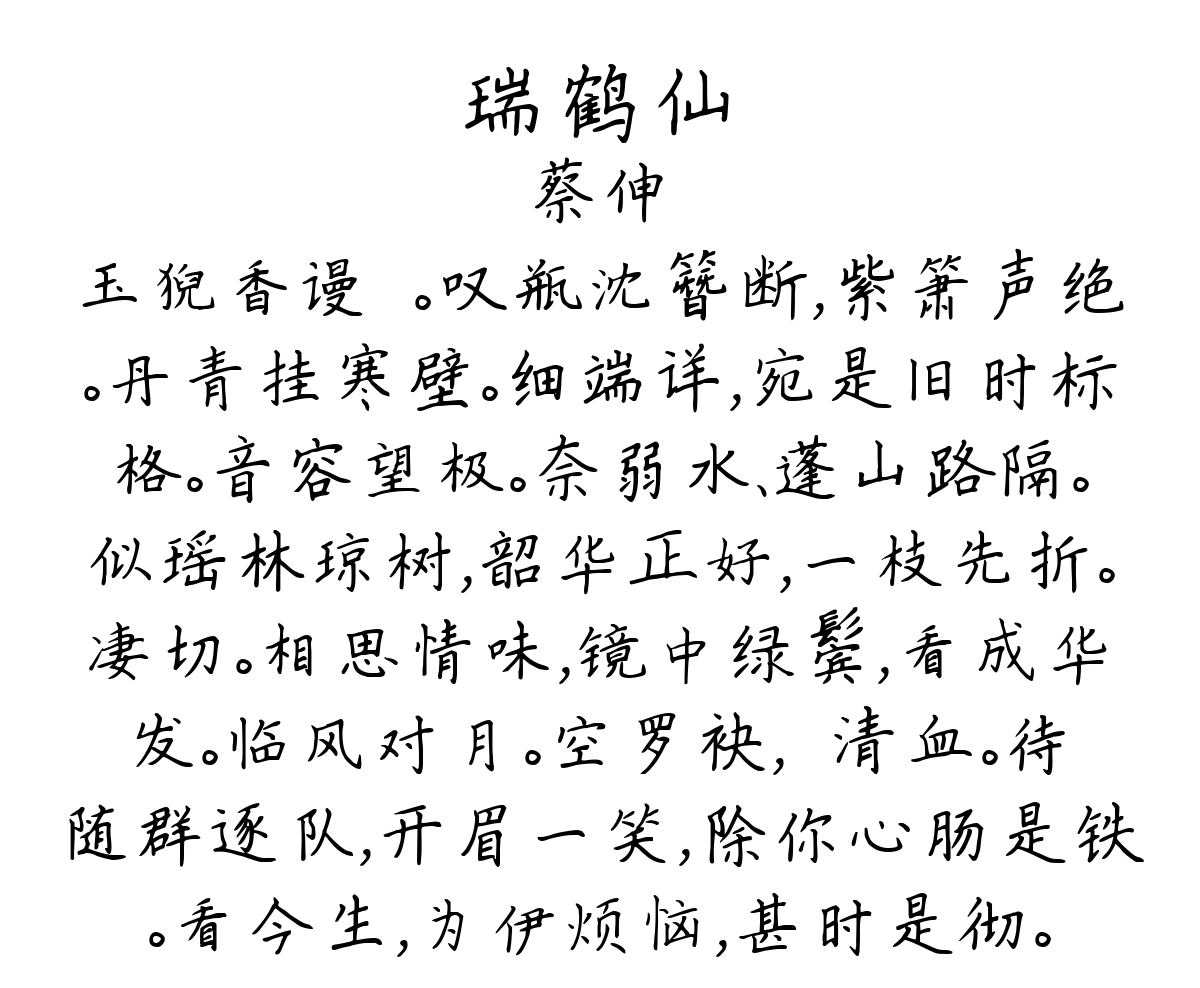 瑞鹤仙
蔡伸
玉猊香谩 。叹瓶沈簪断,紫箫声绝
。丹青挂寒壁。细端详,宛是旧时标
格。音容望极。奈弱水、蓬山路隔。
似瑶林琼树,韶华正好,一枝先折。
凄切。相思情味,镜中绿鬓,看成华
发。临风对月。空罗袂, 清血。待
随群逐队,开眉一笑,除你心肠是铁
。看今生,为伊烦恼,甚时是彻。